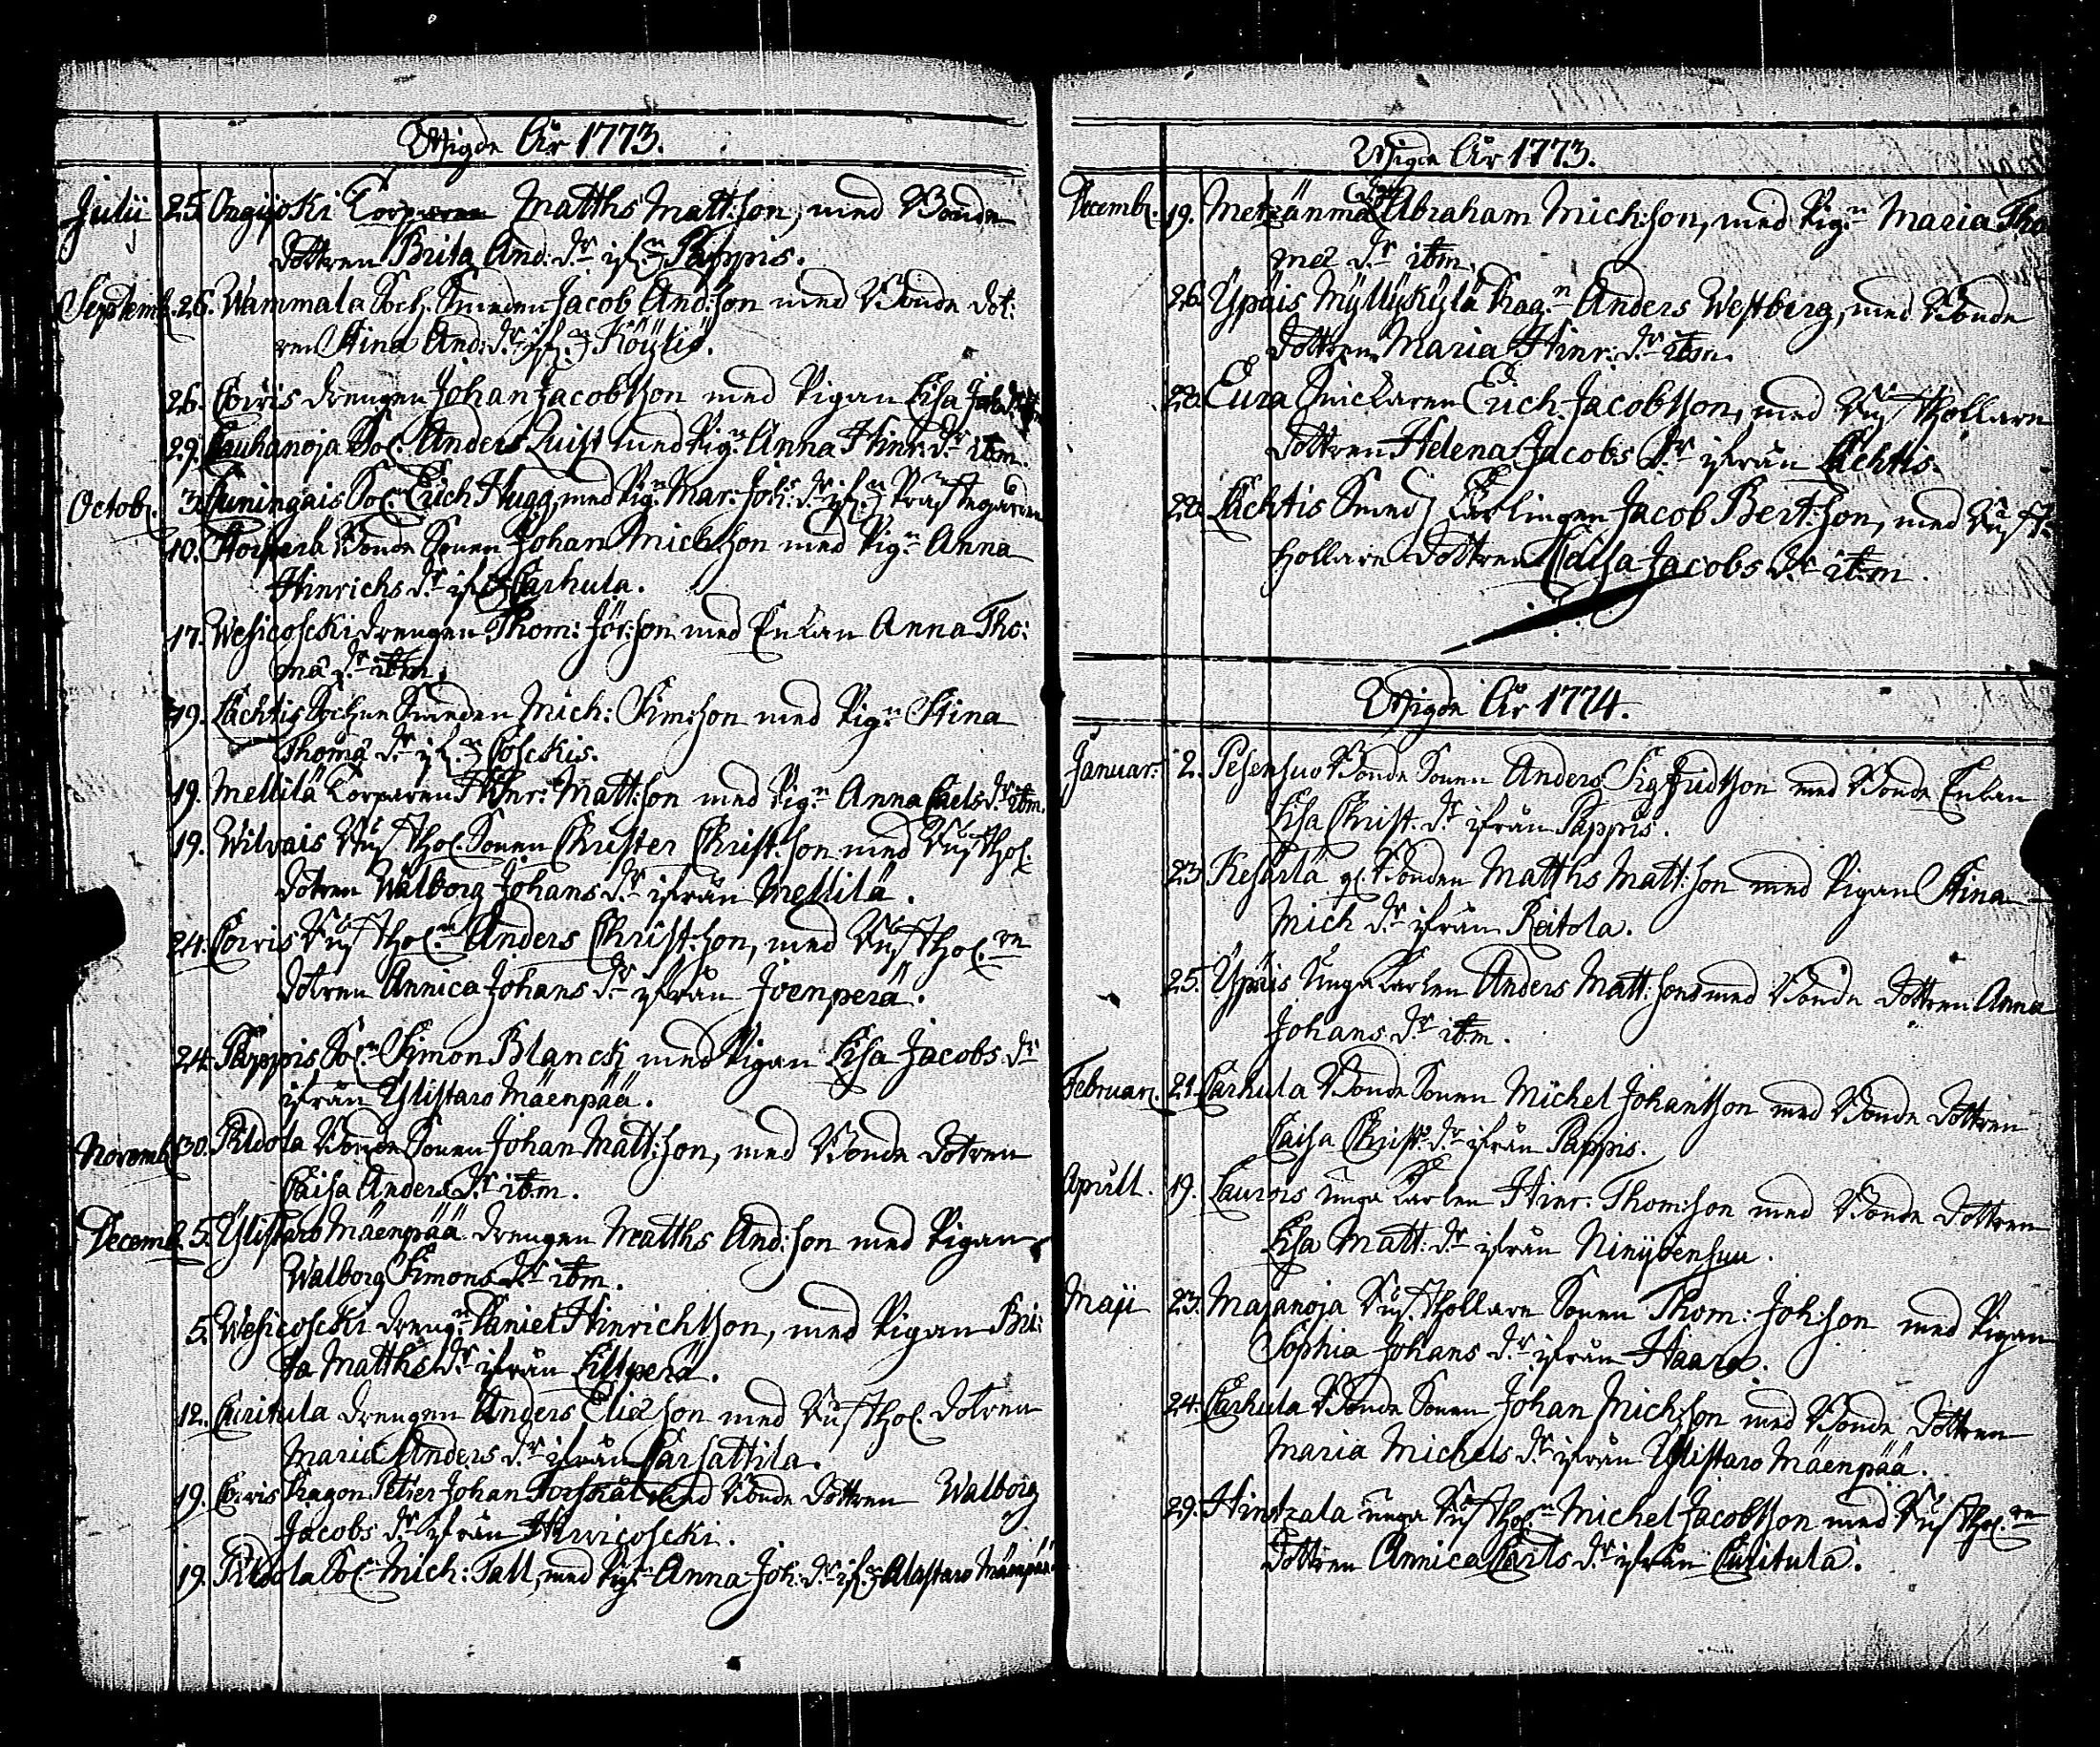 Wigde År 1773.
Julii 25. Ongijoki Torparen Matths Matt:son, med Bonde
dottren Brita And: dr ifrn Pappis.
Septemb. 26. Wammala Soch. Smeden Jacob And:son med Bonde dot:
ren Stina And: dr ifrn Köyliö.
26. Corvis drengen Johan Jacobsson med Pigan Lisa
29. Cauhanoja Sol. Anders Quist med Pign Anna Hinr: dr itm.
Octob. 3. Suningais Soln Erich Hugg, med Pign Mar: Joh: dr ifrn Prästegården
10. Bonde Sonen Johan Mich:son med Pign Anna
Hinrichs dr ifrn Carhula.
17. Wesicoscki drengen Thom: Jör:son med Enkan Anna Tho:
mä dr itm.
19. Lächtis Sochne Smeden Mich: Sim:son med Pign Stina
Thomä dr ifrn Coseckis.
19. Mellilä Torparen Hinr: Matt:son med Pign Anna Carls dr itm.
19. Wilvais Rusthol. Sonen Christer Christ:son med Rusthol.
dotren Walborg Johans dr ifrån Mellilä.
24. Corvis Rustholn Anders Christ:son, med Rusthol.re
dotren Annica Johans dr ifrån Joenperä.
24. Pappis Soln Simon Blanck, med Pigan Lisa Jacobs dr
ifrån Ylistaro Mäenpää.
Novemb. 30. Bonde Sonen Johan Matt:son, med Bonde dotren
Caisa Anders dr itm.
Decemb. 5. Ylistaro Mäenpää drengen Matths And:son med Pigan
Walborg Simons dr itm.
5. Wesicoscki drengn Daniel Hinrichsson, med Pigan Bri:
ta Matths dr ifrån Lillperä.
12. Curitula drengen Anders Elia son med Rusthol. dotren
Maria Anders dr ifrån Carsattila.
19. Corvis Dragon Petter Johan med Bonde dottren Walborg
Jacobs dr ifrån Hirvicoscki.
19. Sol. Mich: Tall, med Pign Anna Joh: dr ifrn Alastaro Mäenpää
Wigde År 1773.
Decemb. 19. Abraham Mich:son, med Pign Maria Tho
mæ dr itm.
26. Ypäis Myllykylä Drag.n Anders Westberg, med Bonde
dottren Maria Hinr: dr itm.
28. Eura Snickaren Erich Jacobsson, med Rusthollare
dottren Helena Jacobs dr ifrån Lächtis.
28. Lächtis Smeds Lärlingen Jacob Bert:son, med Rust-
hollare dottren Caisa Jacobs dr itm.
Wigde År 1774.
Januar: 2. Pesensuo Bonde Sonen Anders Sigfridsson med Bonde Enkan
Lisa Christ. dr ifrån Pappis.
23. Kesärlä gl. Bonden Matths Matt:son med Pigan Stina
Mich dr ifrån Raitola.
25. Ypäis Unga Karlen Anders Matt:son med Bonde dottren Anna
Johans dr itm.
Februar. 21. Carhula Bonde Sonen Michel Johansson med Bonde dottren
Caisa Christ: dr ifrån Pappis.
Aprill. 19. Laurois unga Karlen Hinr. Thom:son med Bonde dottren
Lisa Matt: dr ifrån Ninijoensuu.
Maji 23. Majanoja Rusthollare Sonen Thom: Joh:son med Pigan
Sophia Johans dr ifrån Haara.
24. Carhula Bonde Sonen Johan Mich:son med Bonde dottren
Maria Michels dr ifrån Ylistaro Mäenpää.
29. Hintzala unga Rustholn Michel Jacobsson med Rusthol.re
dottren Annica Carls dr ifrån Curitula.